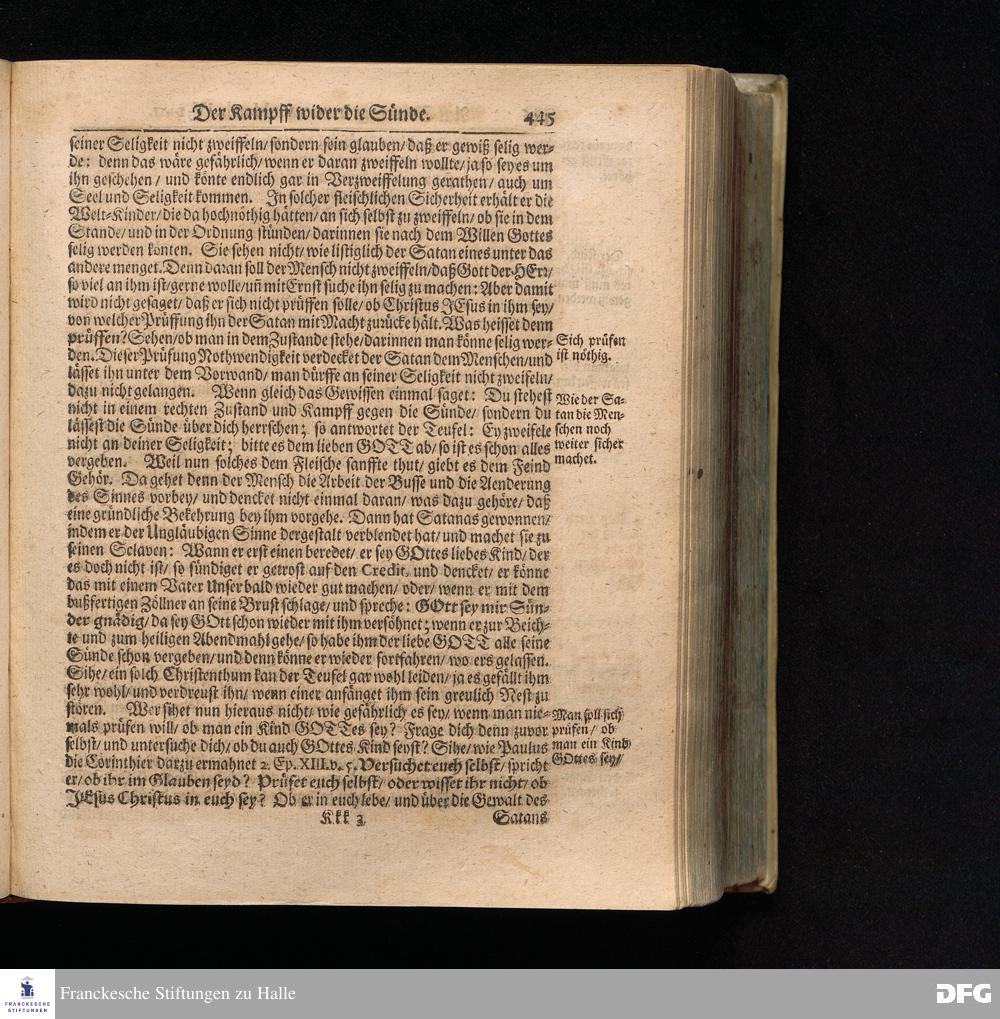 Der Kampff wider die Sünde. 445
seiner Seligkeit nicht zweiffeln/ sondern fein glauben/ daß er gewiß selig wer-
de: denn das wäre gefährlich/ wenn er daran zweiffeln wollte/ ja so sey es um
ihn geschehen/ und könte endlich gar in Verzweiffelung gerathen/ auch um
Seel und Seligkeit kommen. In solcher fleischlichen Sicherheit erhält er die
Welt-Kinder/ die da hochnöthig hätten/ an sich selbst zu zweiffeln/ ob sie in dem
Stande/ und in der Ordnung stünden/ darinnen sie nach dem Willen Gottes
selig werden könten. Sie sehen nicht/ wie listiglich der Satan eines unter das
andere menget. Denn daran soll der Mensch nicht zweiffeln/ daß Gott der HErr/
so viel an ihm ist/ gerne wolle/ uñ mit Ernst suche ihn selig zu machen: Aber damit
wird nicht gesaget/ daß er sich nicht prüffen solle/ ob Christus JEsus in ihm sey/
von welcher Prüffung ihn der Satan mit Macht zurücke hält. Was heisset denn
prüffen? Sehen/ ob man in dem Zustande stehe/ darinnen man könne selig wer-
den. Dieser Prüfung Nothwendigkeit verdecket der Satan dem Menschen/ und
lässet ihn unter dem Vorwand/ man dürffe an seiner Seligkeit nicht zweifeln/
dazu nicht gelangen. Wenn gleich das Gewissen einmal saget: Du stehest
nicht in einem rechten Zustand und Kampff gegen die Sünde/ sondern du
lässest die Sünde über dich herrschen; so antwortet der Teufel: Ey zweifele
nicht an deiner Seligkeit; bitte es dem lieben GOTT ab/ so ist es schon alles
vergeben. Weil nun solches dem Fleische sanffte thut/ giebt es dem Feind
Gehör. Da gehet denn der Mensch die Arbeit der Busse und die Aenderung
des Sinnes vorbey/ und dencket nicht einmal daran/ was dazu gehöre/ daß
eine gründliche Bekehrung bey ihm vorgehe. Dann hat Satanas gewonnen/
indem er der Ungläubigen Sinne dergestalt verblendet hat/ und machet sie zu
seinen Sclaven: Wann er erst einen beredet/ er sey GOttes liebes Kind/ der
es doch nicht ist/ so sündiget er getrost auf den Credit, und dencket/ er könne
das mit einem Vater Unser bald wieder gut machen/ oder/ wenn er mit dem
bußfertigen Zöllner an seine Brust schlage/ und spreche: GOtt sey mir Sün-
der gnädig/ da sey GOtt schon wieder mit ihm versöhnet; wenn er zur Beich-
te und zum heiligen Abendmahl gehe/ so habe ihm der liebe GOTT alle seine
Sünde schon vergeben/ und denn könne er wieder fortfahren/ wo ers gelassen.
Sihe/ ein solch Christenthum kan der Teufel gar wohl leiden/ ja es gefällt ihm
sehr wohl/ und verdreust ihn/ wenn einer anfänget ihm sein greulich Nest zu
stören. Wer sihet nun hieraus nicht/ wie gefährlich es sey/ wenn man nie-
mals prüfen will/ ob man ein Kind GOTTes sey? Frage dich denn zuvor
selbst/ und untersuche dich/ ob du auch GOttes Kind seyst? Sihe/ wie Paulus
die Corinthier darzu ermahnet 2. Ep. XIII. v. 5. Versuchet euch selbst/ spricht
er/ ob ihr im Glauben seyd? Prüfet euch selbst/ oder wisset ihr nicht/ ob
JEsus Christus in euch sey? Ob er in euch lebe/ und über die Gewalt des
Kkk 3 Satans
Sich prüfen
ist nöthig.
Wie der Sa-
tan die Men-
schen noch
weiter sicher
machet.
Man soll sich
prüfen/ ob
man ein Kind
GOttes sey/
FRANCKESCHE
STIFTUNGEN
Franckesche Stiftungen zu Halle
DFG